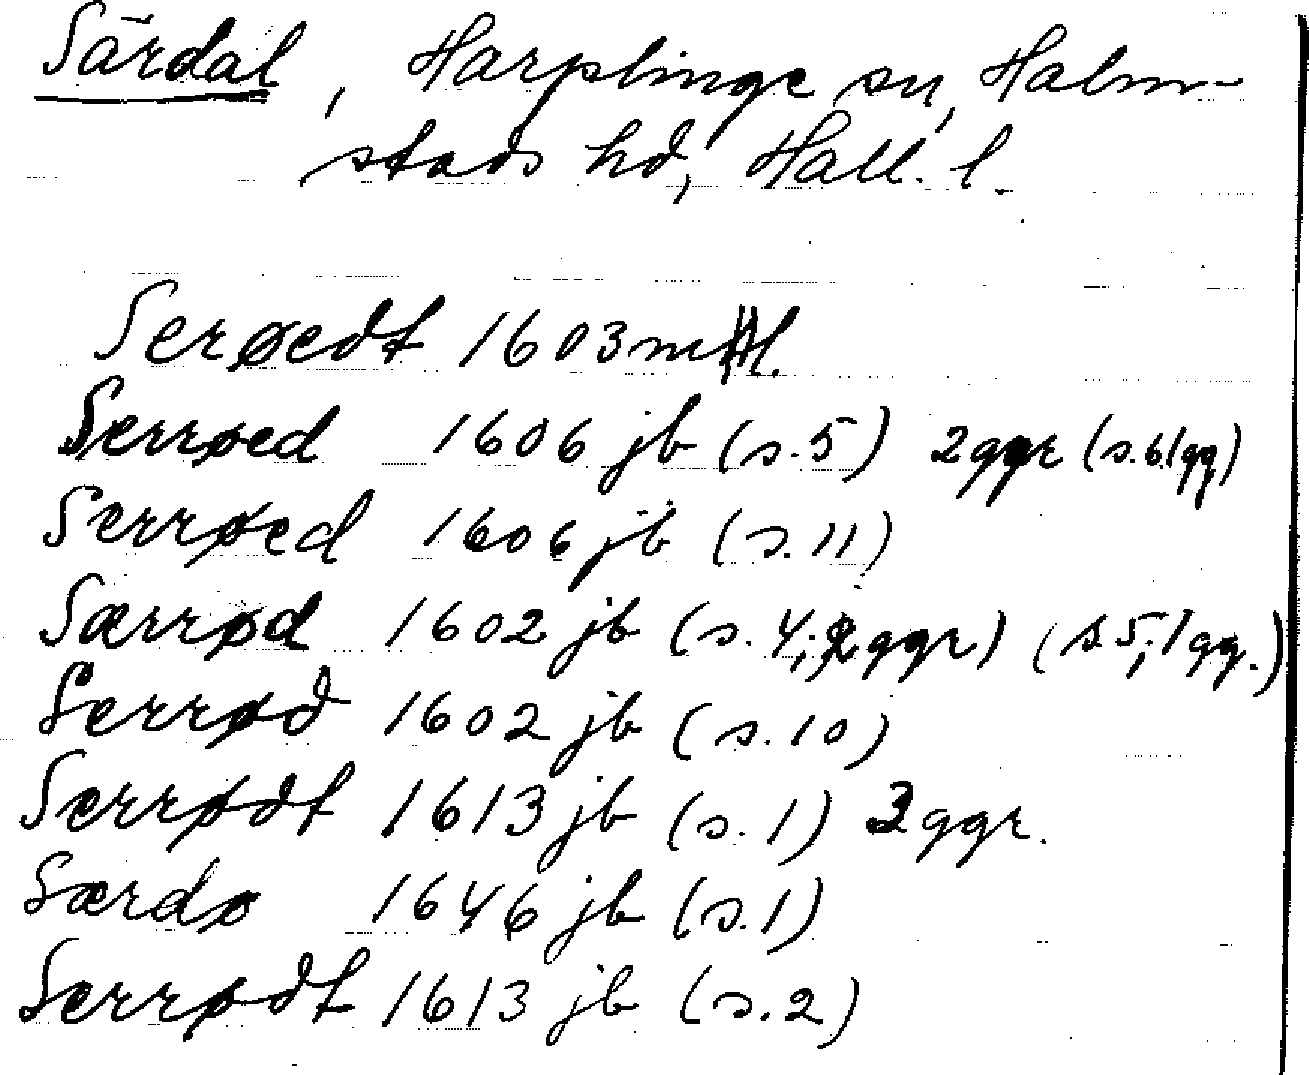 Särdal, Harplinge sn, Halm-
stads hd, Hall. l.
Serøedt 1603 mtl.
Serrøed 1606 jb (s.5) 2ggr (s.6, 1gg)
Serrøed 1606 jb (s.11)
Særrød 1602 jb (s.4; 2ggr) (s 5, 1gg.)
Serrød 1602 jb (s.10)
Særrødt 1613 jb (s.1) 3ggr.
Særdø 1646 jb (s.1)
Serrødt 1613 jb (s.2)